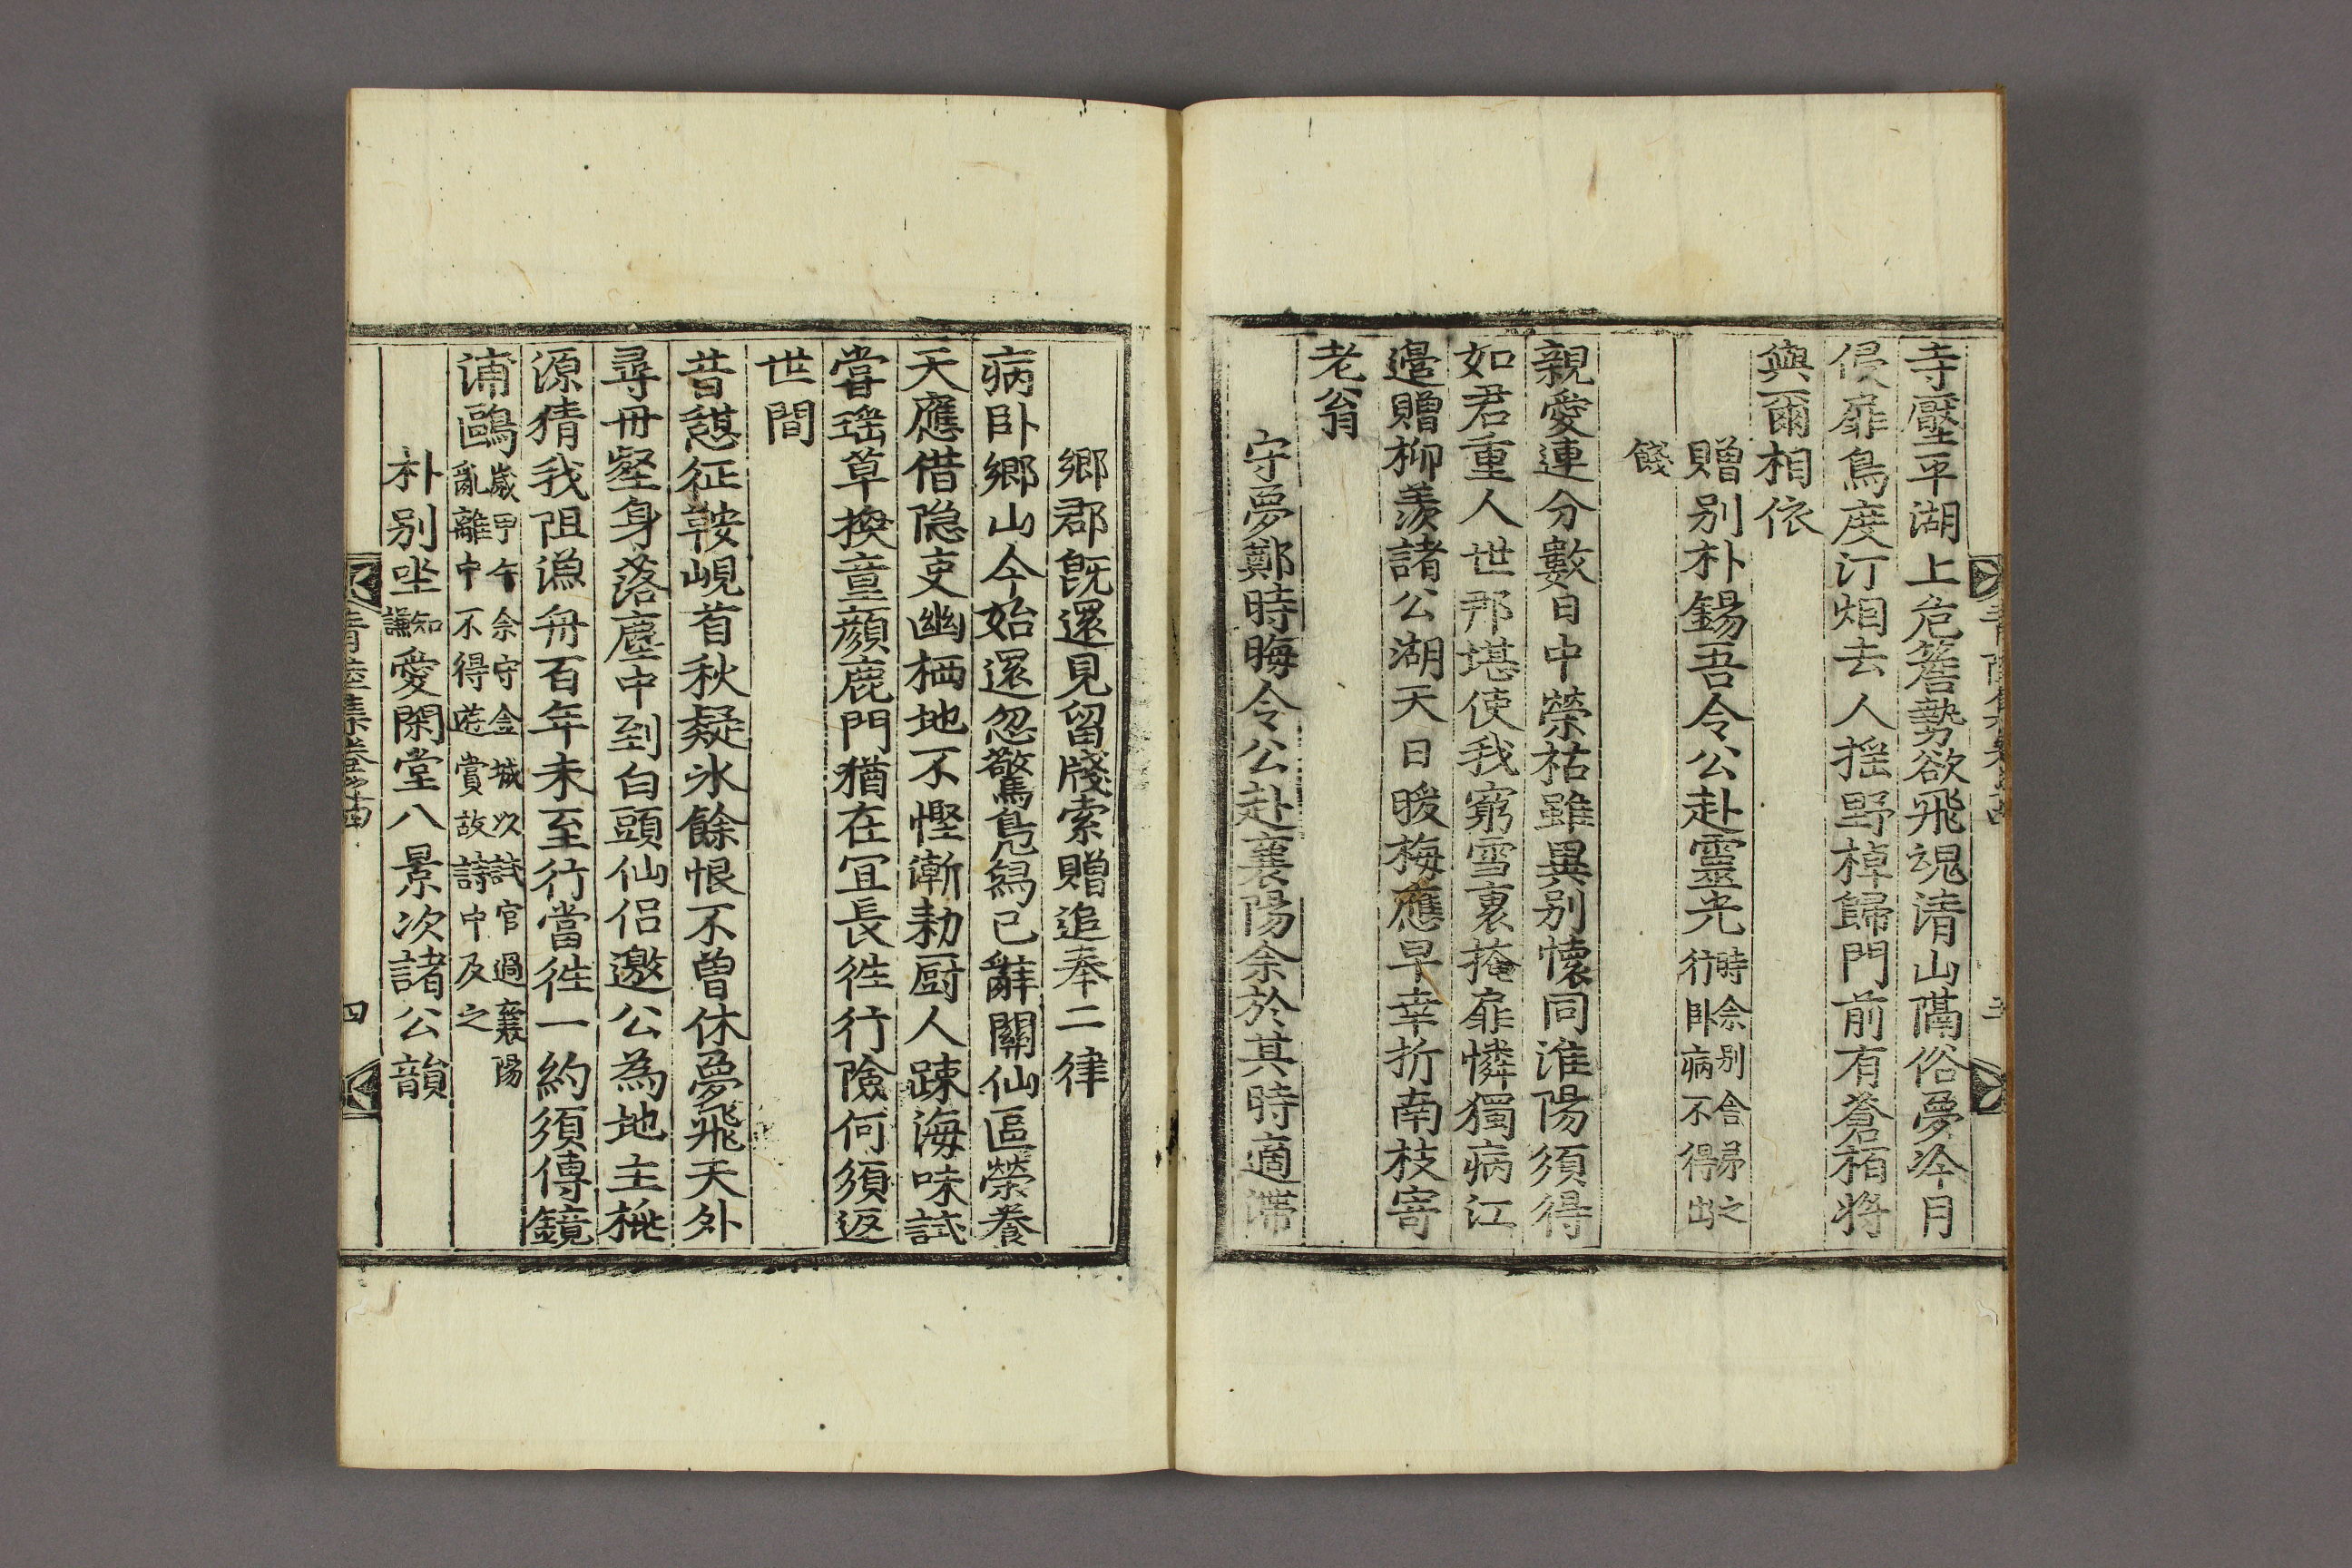 寺壓平湖上危簷勢欲飛魂清山隔俗夢冷月
侵扉鳥度汀烟去人搖野棹歸門前有蒼栢將
與爾相依
贈别朴錫吾令公赴靈光時余别舍弟之行卧病不得出
餞
親愛連分數日中榮枯雖異别懷同淮陽須得
如君重人世那堪使我窮雪裏掩扉憐獨病江
邉贈柳羨諸公湖天日暖梅應早幸折南枝寄
老翁
守夢鄭時晦令公赴襄陽余於其時適滯
鄉郡旣還見留牋索贈追奉二律
病卧鄉山今始還忽驚鳬舄已辭關仙區榮養
天應借隐吏幽栖地不慳漸勑厨人踈海味試
嘗瑶草換童顔鹿門猶在冝長徃行險何須返
世間
昔憇征鞍峴首秋凝氷餘恨不曾休夢飛天外
尋丹壑身落塵中到白頭仙侣邀公為地主桃
源猜我阻漁舟百年未至行當徃一約須傳鏡
浦鷗歲甲午余守金城以試官過襄陽亂離中不得遊賞故詩中及之
朴别坐知謙愛閑堂八景次諸公韻
青陸集卷之四
四